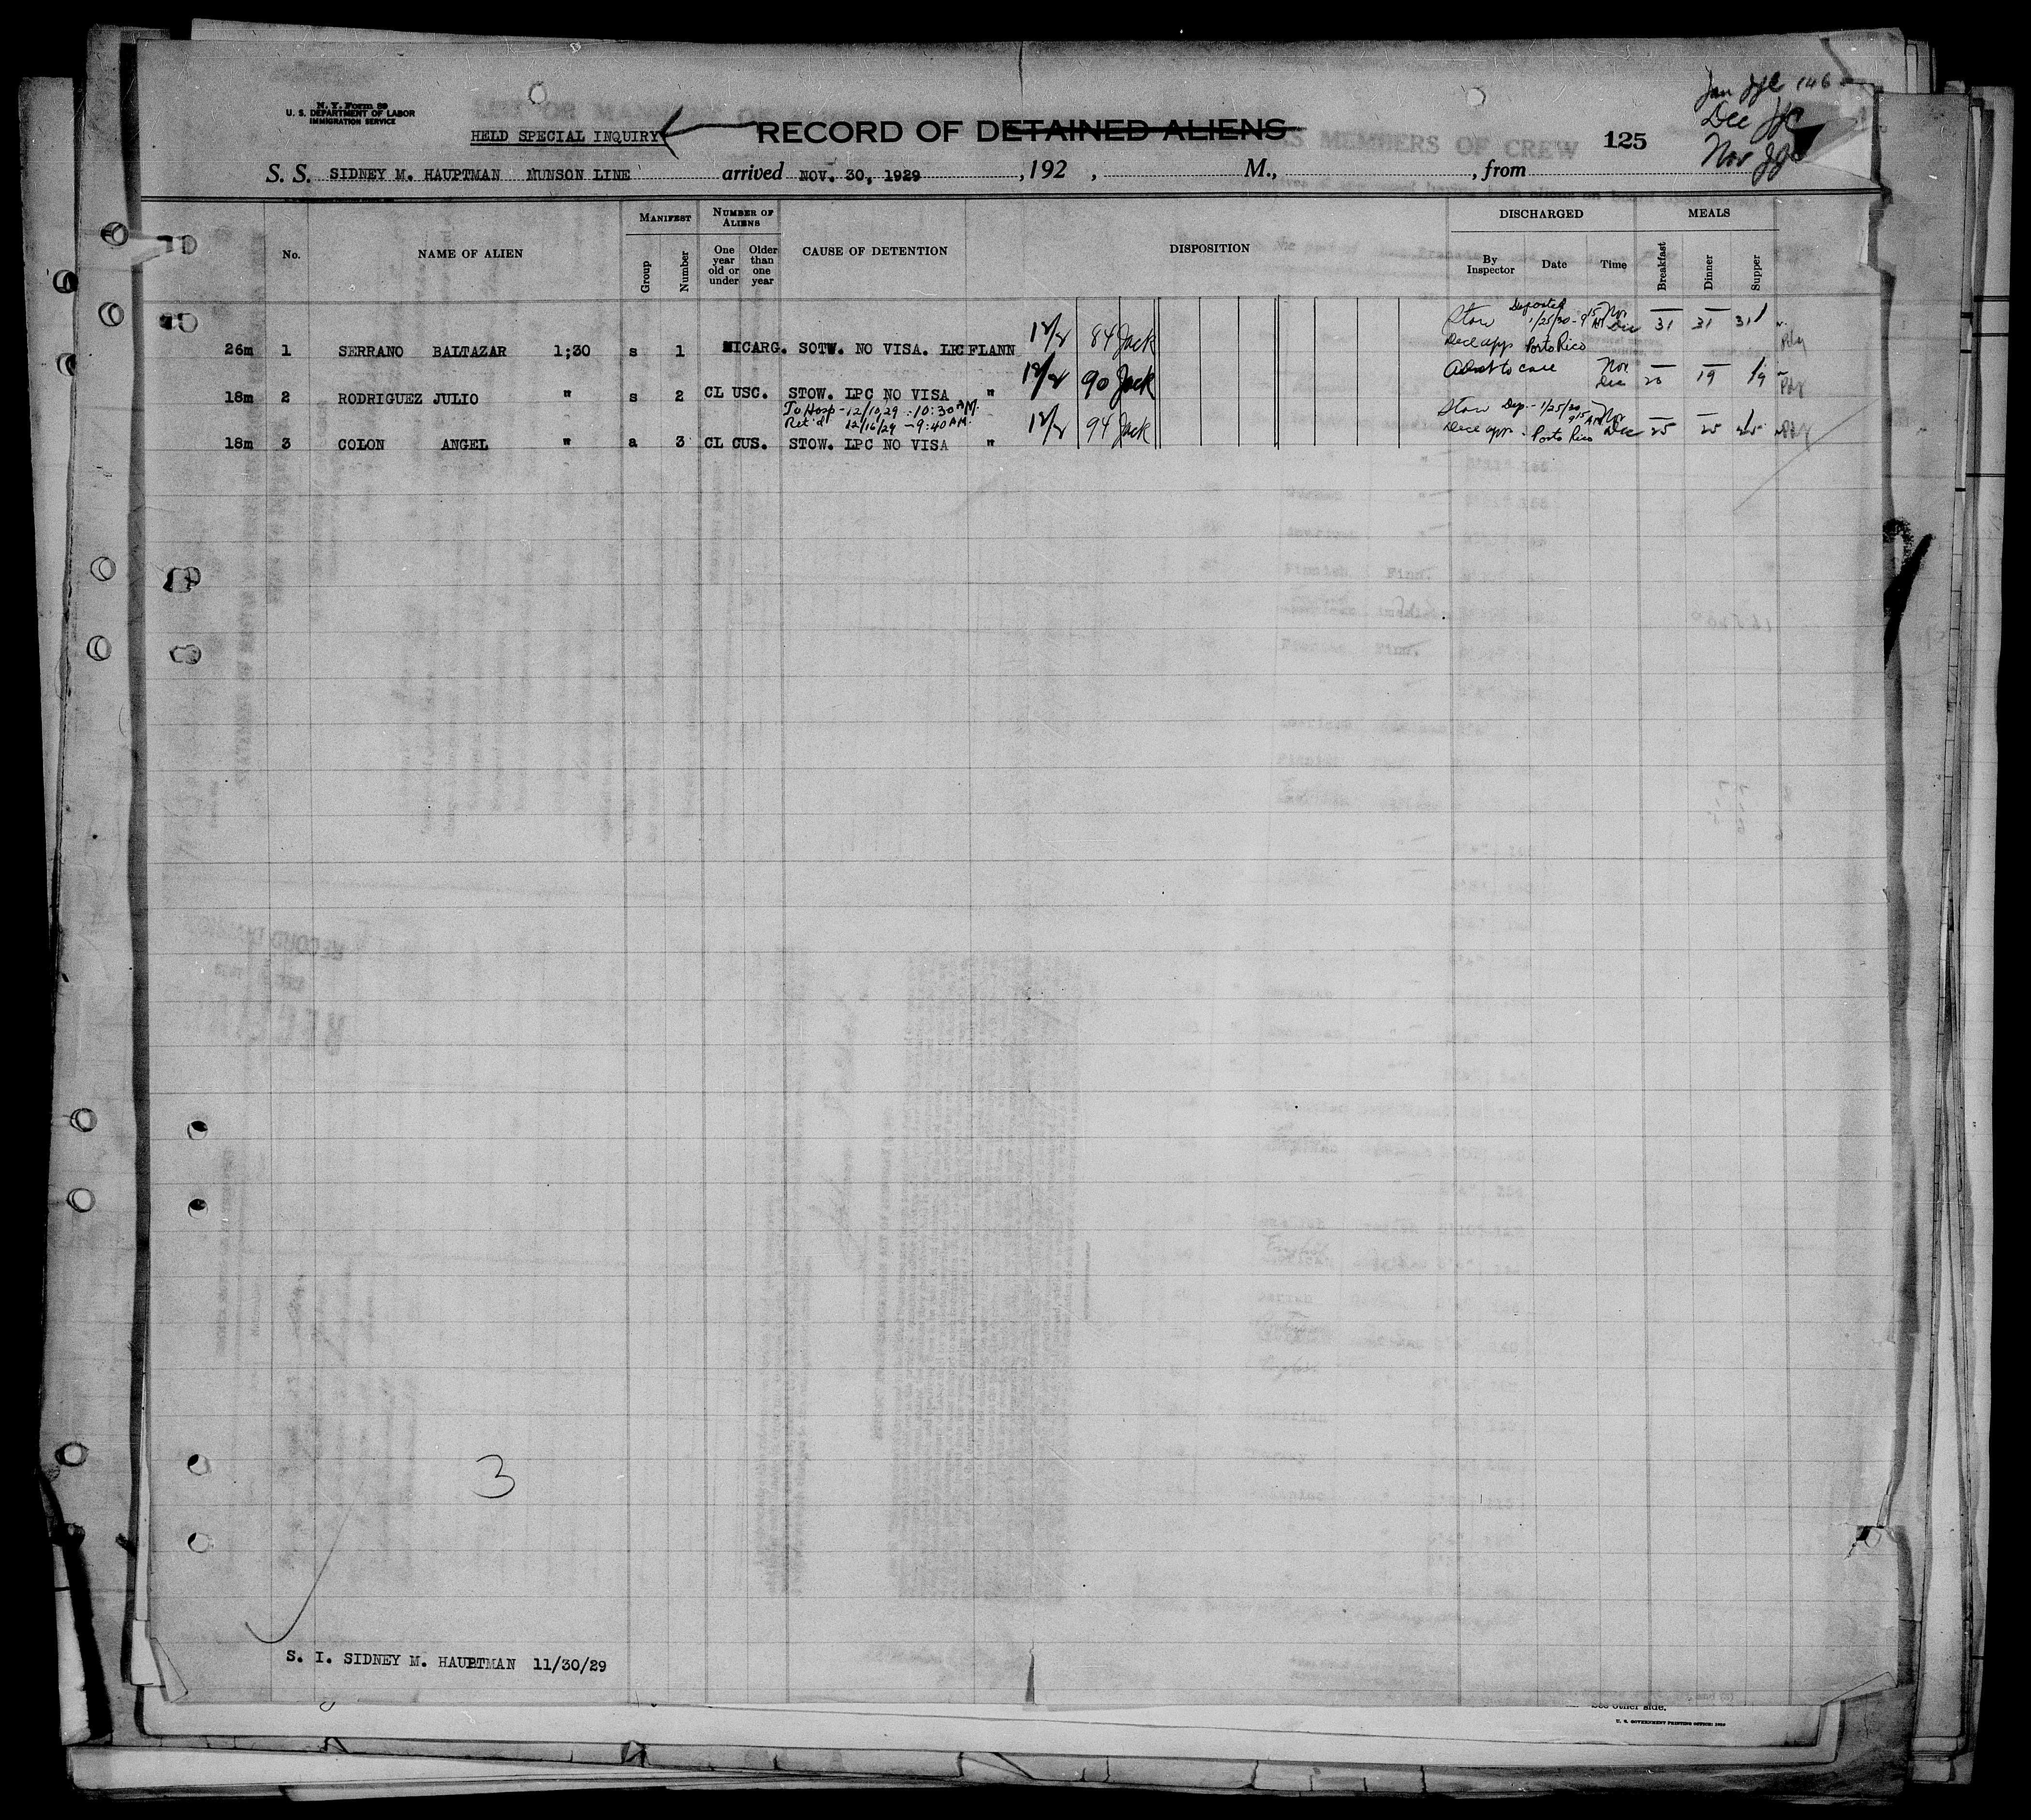 N. Y. Form 89
U. S. DEPARTMENT OF LABOR
IMMIGRATION SERVICE
HELD SPECIAL INQUIRY
RECORD OF DETAINED ALIENS
125
Jan 146
Dec
Nov
S. S. SIDNEY M. HAUPTMAN MUNSON LINE arrived NOV. 30, 1929, 192 , M., , from
No.
NAME OF ALIEN
MANIFEST
Group
Number
NUMBER OF ALIENS
One year old or under
Older than one year
CAUSE OF DETENTION
DISPOSITION
DISCHARGED
By Inspector
Date
Time
MEALS
Breakfast
Dinner
Supper
26m 1 SERRANO BALTAZAR 1;30 s 1 NICARG. SOTW. NO VISA. LPC FLANN 12/2 84 Jack Stow Deported 1/25/30 - 9 15 AM Nov — — —
Decl app Porto Rico Dec 31 31 31
18m 2 RODRIGUEZ JULIO " s 2 CL USC. STOW. LPC NO VISA " 12/2 90 Jack Nov — — —
Dec 20 19 19
To Hosp - 12/10/29 - 10:30 AM.
Ret'd 12/16/29 - 9:40 AM.
18m 3 COLON ANGEL " a 3 CL CUS. STOW. LPC NO VISA " 12/2 94 Jack Stow Dep. - 1/25/30 9 15 AM Nov — — —
Decl app - Porto Rico Dec 25 25 25
3
S. I. SIDNEY M. HAUPTMAN 11/30/29
See other side.
U. S. GOVERNMENT PRINTING OFFICE: